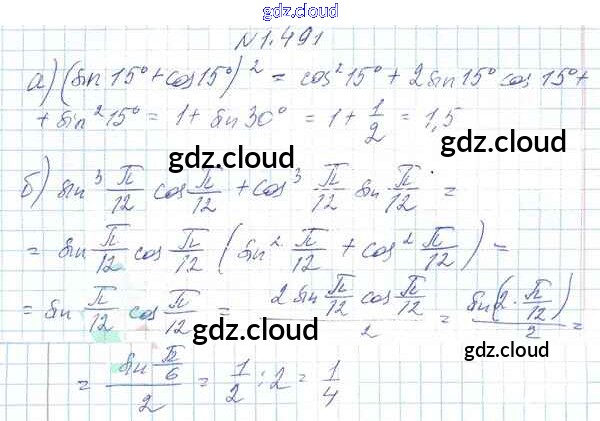 gdz.cloud
N 1.491
а) (sin 15° + cos 15°)² = cos² 15° + 2 sin 15° cos 15° +
+ sin² 15° = 1 + sin 30° = 1 + 1/2 = 1,5
gdz.cloud gdz.cloud
б) sin³ π/12 cos π/12 + cos³ π/12 sin π/12 =
= sin π/12 cos π/12 (sin² π/12 + cos² π/12) =
gdz.cloud gdz.cloud
= sin π/12 cos π/12 = 2 sin π/12 cos π/12 / 2 = sin(2 · π/12) / 2 =
gdz.cloud gdz.cloud
= sin π/6 / 2 = 1/2 : 2 = 1/4